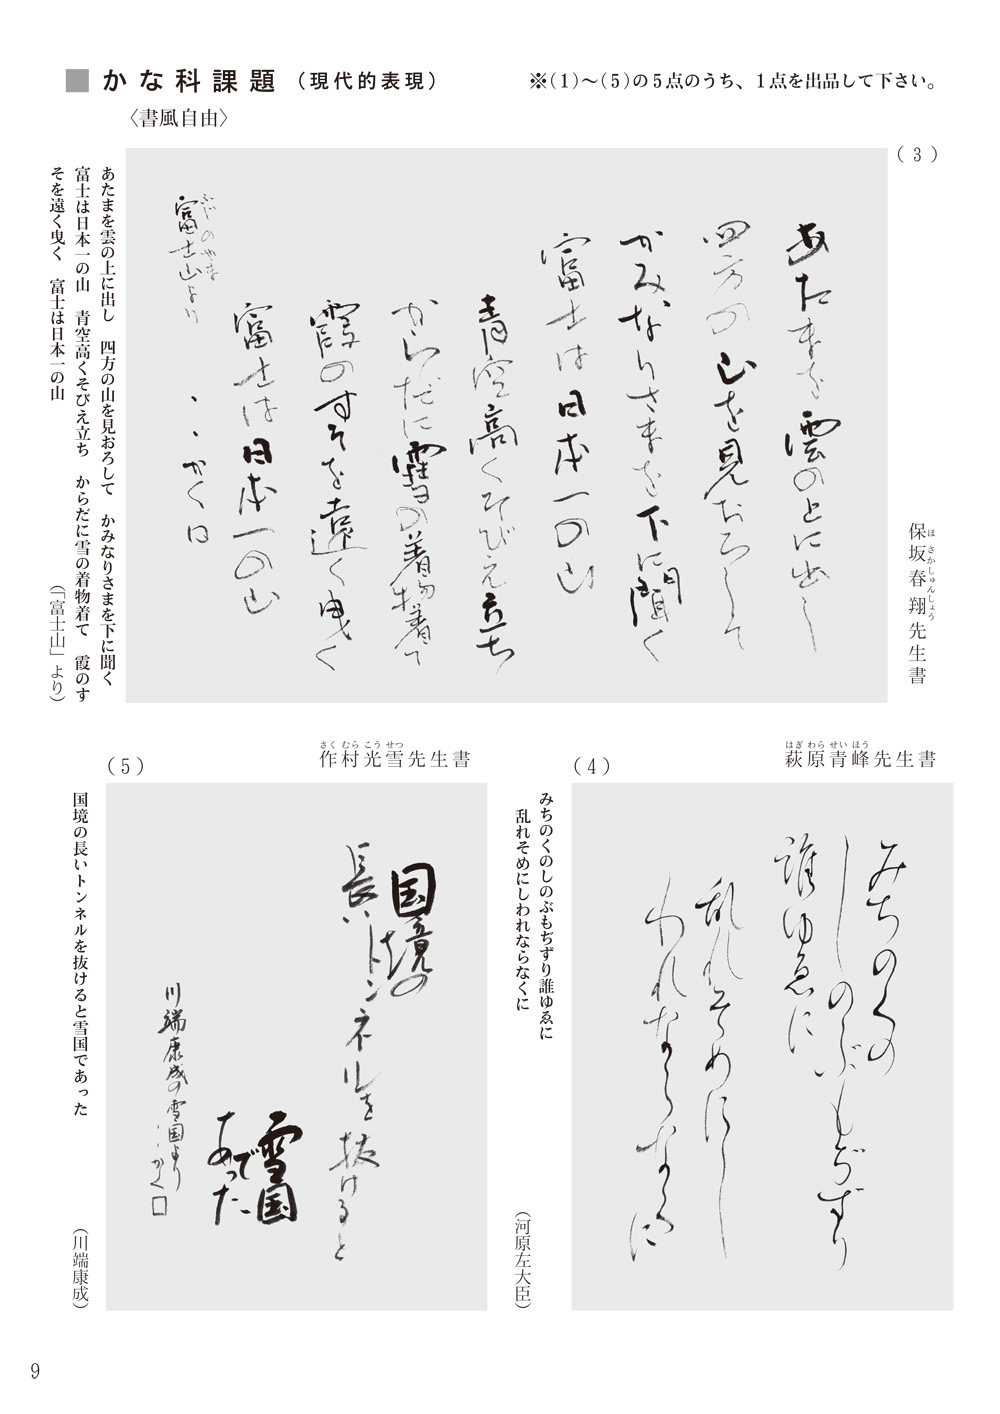 ■かな科課題（現代的表現）
※(1)～(5)の5点のうち、1点を出品して下さい。
〈書風自由〉
(3)
保坂春翔先生書
ほさかしゅんしょう
あたまを雲の上に出し
四方の山を見おろして
かみなりさまを下に聞く
富士は日本一の山
青空高くそびえ立ち
からだに雪の着物着て
霞のすそを遠く曳く
富士は日本一の山
ふじのやま
富士山より
・・かく日
あたまを雲の上に出し　四方の山を見おろして　かみなりさまを下に聞く
富士は日本一の山　青空高くそびえ立ち　からだに雪の着物着て　霞のす
そを遠く曳く　富士は日本一の山
（「富士山」より）
(4)
萩原青峰先生書
はぎわらせいほう
みちのくの
しのぶもぢずり
誰ゆゑに
乱れそめにし
われならなくに
みちのくのしのぶもぢずり誰ゆゑに
乱れそめにしわれならなくに
（河原左大臣）
(5)
作村光雪先生書
さくむらこうせつ
国境の
長いトンネルを抜けると
雪国
であった
川端康成の雪国より
・・かく□
国境の長いトンネルを抜けると雪国であった
（川端康成）
9